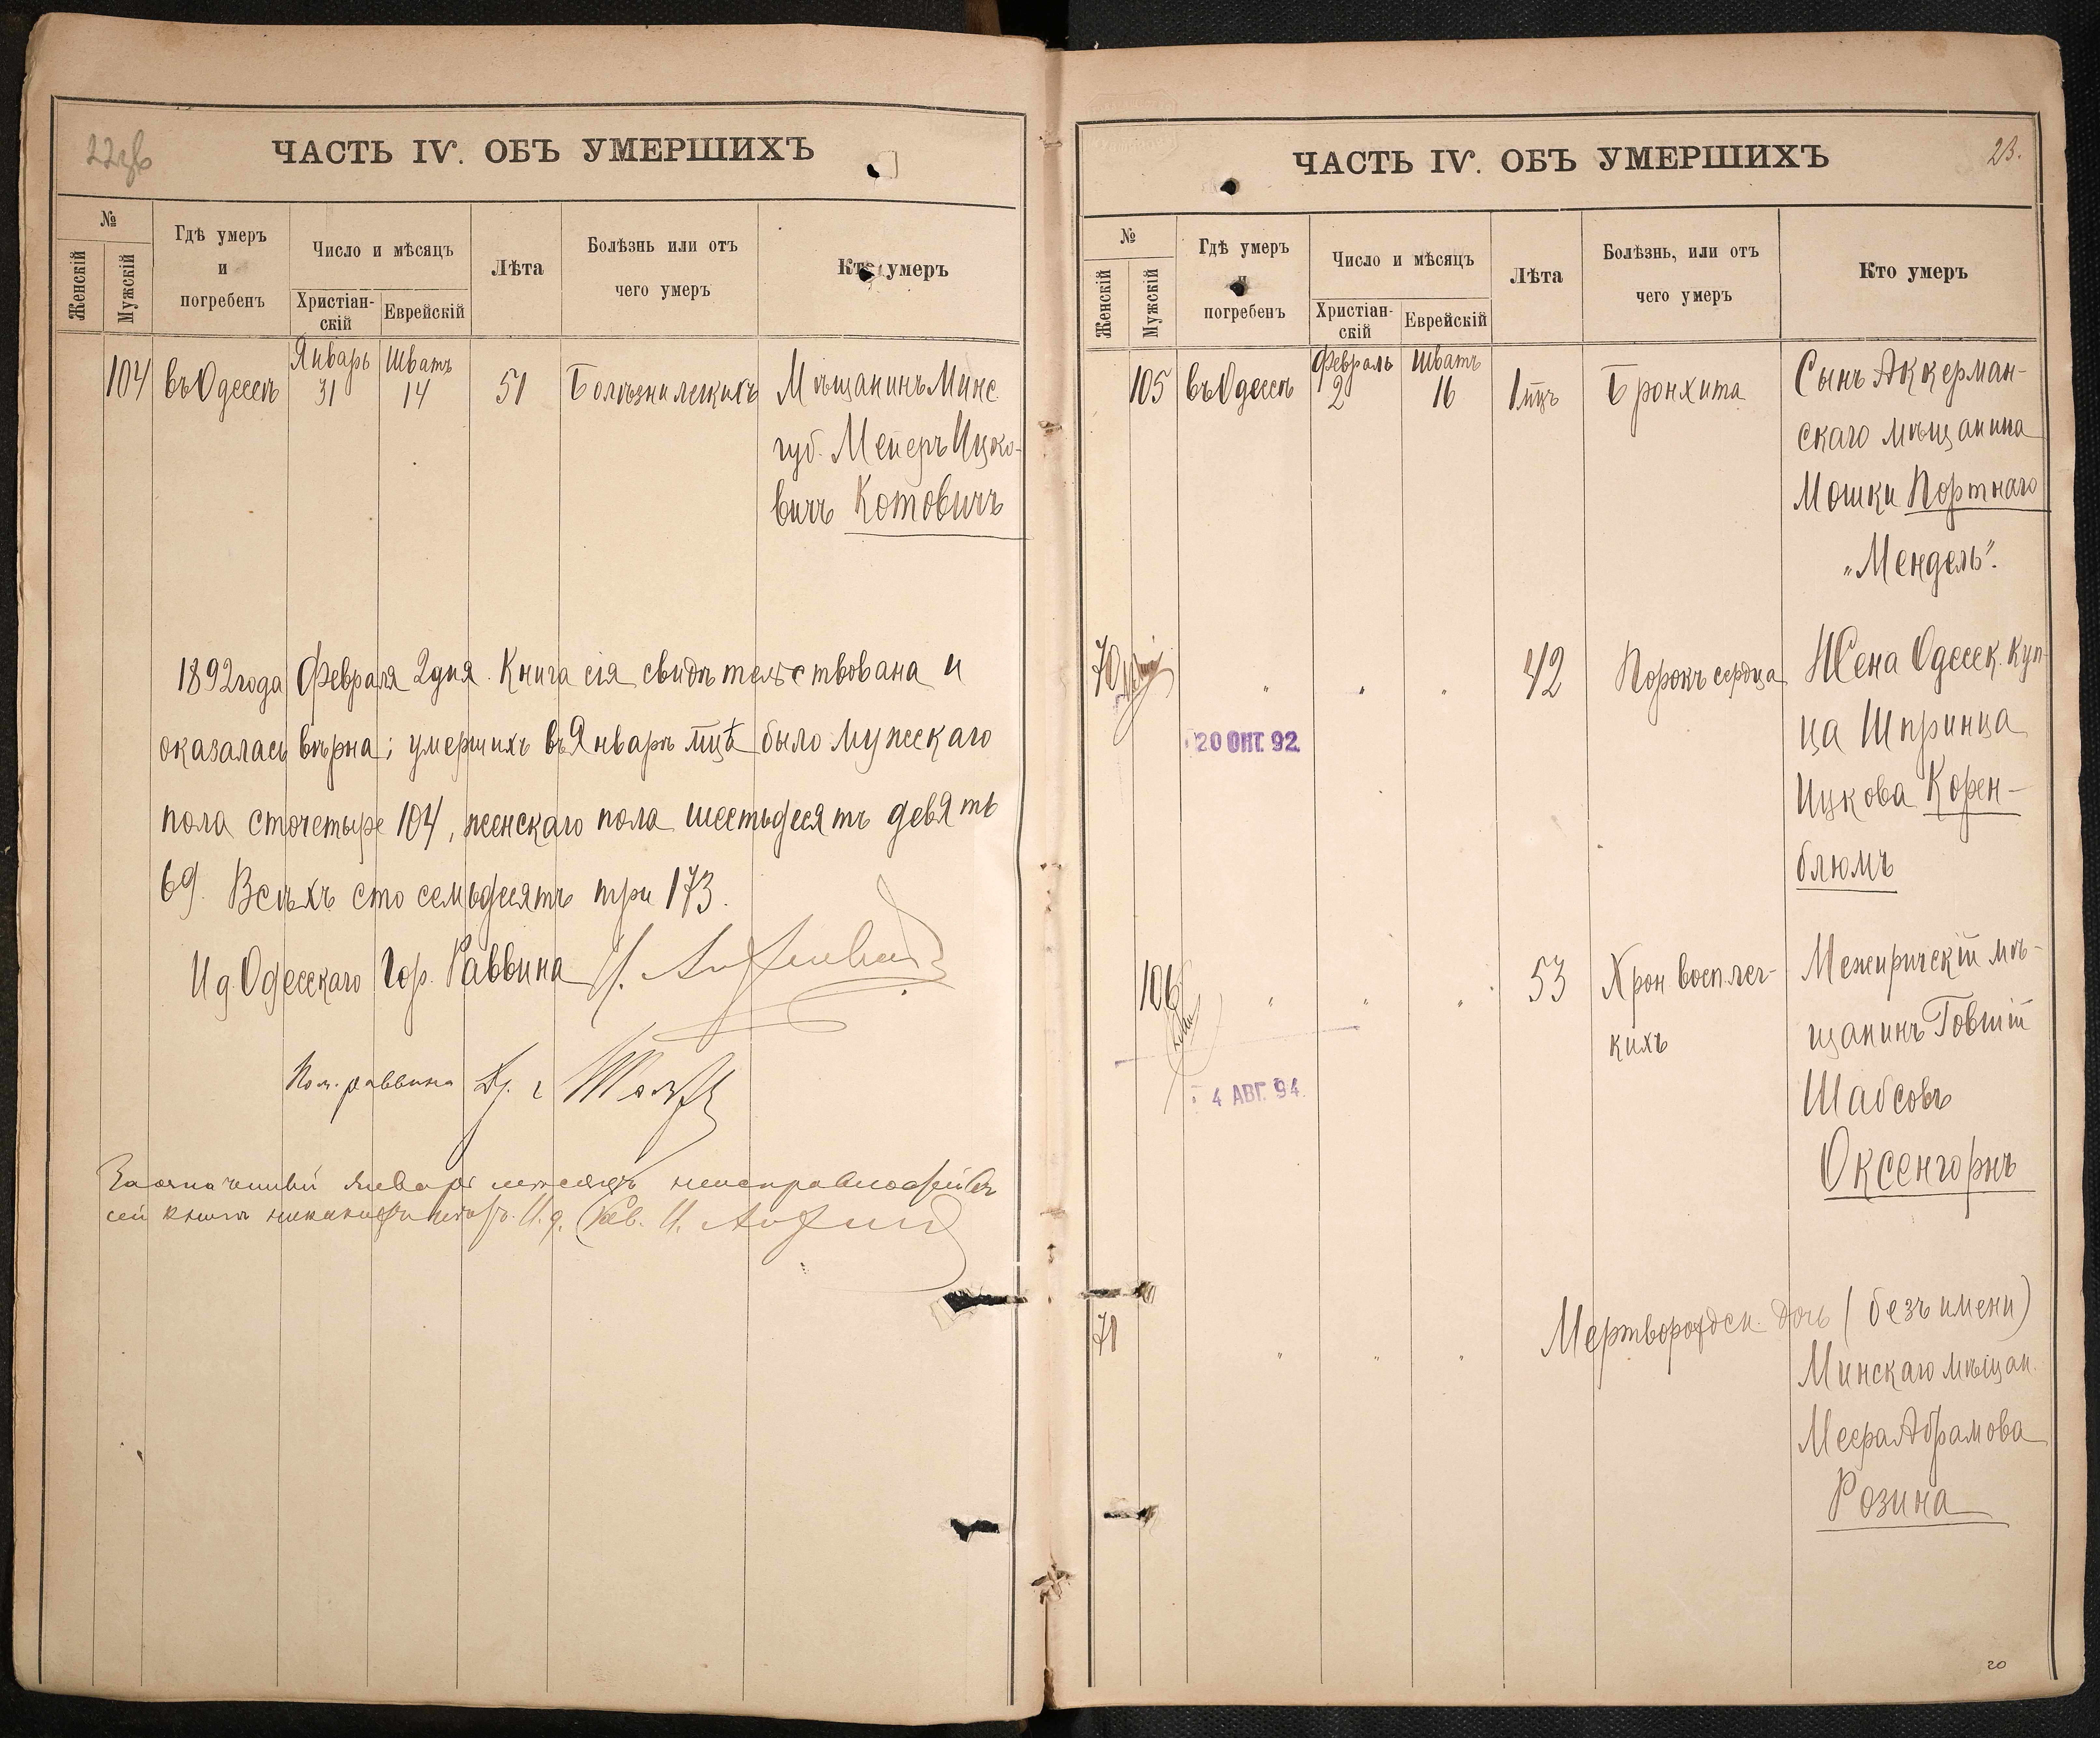 22об
ЧАСТЬ IV. ОБЪ УМЕРШИХЪ
№
Женскій
Мужскій
Гдѣ умеръ
и
погребенъ
Число и мѣсяцъ
Христіан-
скій
Еврейскій
Лѣта
Болѣзнь или отъ
чего умеръ
Кто умеръ
104 въ Одессѣ Январь 31 Шватъ 14 51 Болѣзни легкихъ Мѣщанинъ Минс.
губ. Мейеръ Ицко-
вичъ Котовичъ
1892 года Февраля 2 дня. Книга сія свидѣтельствована и
оказалась вѣрна; умершихъ въ Январѣ мцѣ было мужскаго
пола сто четыре 104, женскаго пола шестьдесятъ девять
69. Всѣхъ сто семьдесятъ три 173.
И д Одесскаго Гор. Раввина
Пом. раввина
За означенный январь мѣсяцъ неисправностей въ
сей книгѣ никакихъ И. д.
23.
ЧАСТЬ IV. ОБЪ УМЕРШИХЪ
№
Женскій
Мужскій
Гдѣ умеръ
и
погребенъ
Число и мѣсяцъ
Христіан-
скій
Еврейскій
Лѣта
Болѣзнь, или отъ
чего умеръ
Кто умеръ
105 въ Одессѣ Февраль 2 Шватъ 16 1 мцъ Бронхита Сынъ Аккерман-
скаго мѣщанина
Мошки Портнаго
„Мендель".
70 " " " 42 Порокъ сердца Жена Одесск. куп-
ца Шпринца
20 ОКТ. 92
Ицкова Корен-
блюмъ
106 " " " 53 Хрон восп. лег-
кихъ
Межиричскій мѣ-
щанинъ Товшій
4 АВГ. 94.
Шабсовъ
Оксенгорнъ
71 " " " Мертворожден. дочь (безъ имени)
Минскаго мѣщан.
Меера Абрамова
Розина
20